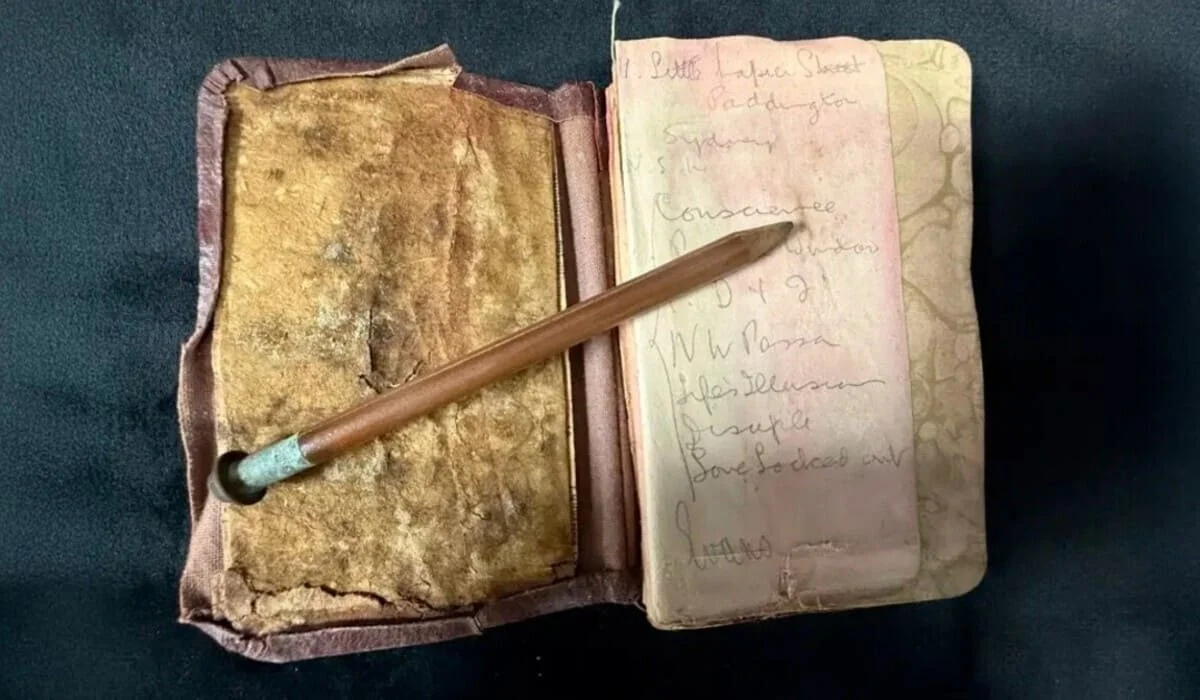 Little Street
Paddington
Sydney
N. S. W
Conscience
Window
D & J
N W Passa
Life's Illusion
Disciple
Love Locked out
Evans